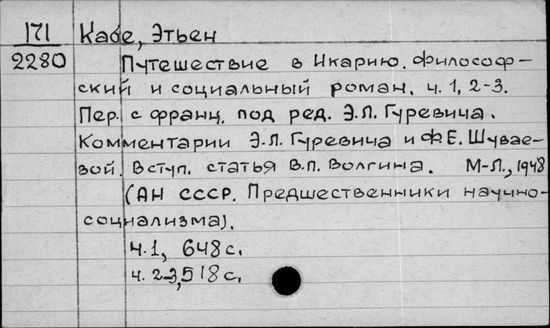 171 Кабе, Этьен
2280 Путешествие в Икарию. Философ-
ский и социальный роман. ч. 1, 2-3.
Пер. с франц. под ред. Э.Л. Гуревича.
Комментарии Э.Л. Гуревича и Ф.Е. Шувае-
вой. Вступ. статья В.П. Волгина. М-Л., 1948
(АН СССР. Предшественники научно-
социализма).
ч.1, 648 с.
ч. 2-3, 518 с.